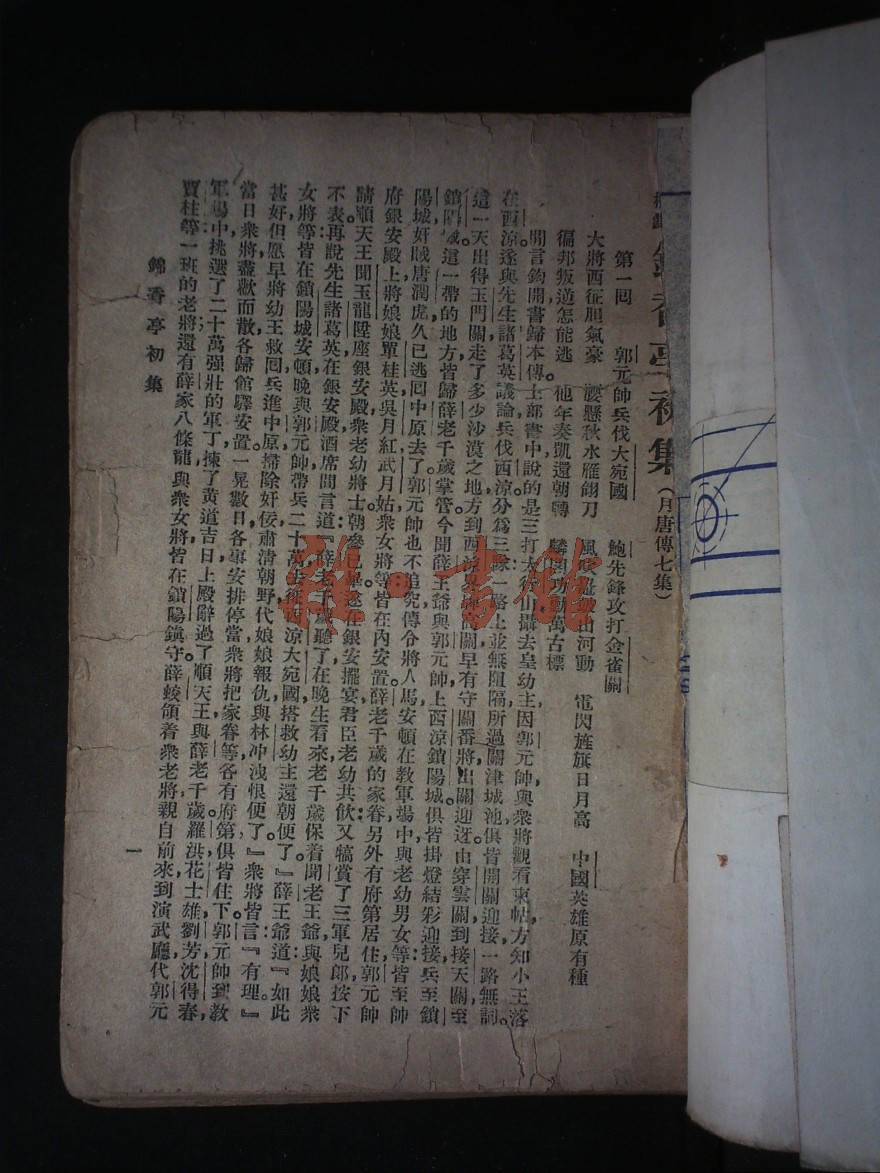 錦香亭初集(月唐傳七集)
第一回 郭元帥兵伐大宛國 鮑先鋒攻打金雀關
大將西征胆氣豪 腰懸秋水雁翎刀 風 山河動 電閃旌旗日月高 中國英雄原有種
徧邦叛逆怎能逃 他年奏凱還朝轉 麟閣功勳萬古標
閒言鈎開書歸本傳上部書中說的是三打太行山攝去皇幼主,因郭元帥與衆將觀看柬帖,方知小王落
在西涼遂與先生諸葛英議論兵伐西涼。分爲三隊一路上並無阻隔所過關津城池,俱皆開關迎接一路無詞。
這一天出得玉門關,走了多少沙漠之地方到西涼 關早有守關番將,出關迎迓。由穿雲關,到接天關,至
鎖陽城。這一帶的地方皆歸薛老千歲掌管今聞薛王爺與郭元帥上西涼鎖陽城,俱皆掛燈結彩迎接,兵至鎖
陽城奸賊唐潤虎久已逃囘中原去了。郭元帥也不追究傳令將人馬安頓在教軍場中,與老幼男女等,皆至帥
府銀安殿上將娘娘單桂英吳月紅武月姑衆女將等皆在內安置。薛老千歲的家眷,另外有府第居住,郭元帥
請順天王聞玉龍陞座銀安殿,衆老幼將士朝參已畢,遂在銀安擺宴,君臣老幼共飲,又犒賞了三軍兒郎,按下
不表。再說先生諸葛英在銀安殿酒席間言道:『薛老千歲聽了,在晚生看來,老千歲保着聞老王爺,與娘娘衆
女將等,皆在鎖陽城安頓,晚與郭元帥帶兵二十萬去征西涼大宛國,搭救幼主還朝便了。』薛王爺道:『如此
甚好,但愿早將幼王救囘,兵進中原,掃除奸佞肅清朝野代娘娘報仇與林冲洩恨便了。』衆將皆言『有理。』
當日衆將盡歡而散各歸館驛安置。一晃數日,各事安排停當,衆將把家眷等,各有府第俱皆住下。郭元帥到教
軍場中挑選了二十萬强壯的軍丁,揀了黃道吉日,上殿辭過了順天王,與薛老千歲。羅洪花士雄劉芳沈得春,
賈柱等一班的老將還有薛家八條龍,與衆女將,皆在鎖陽鎮守,薛蛟領着衆老將親自前來,到演武廳,代郭元
錦香亭初集
一
雜·書館